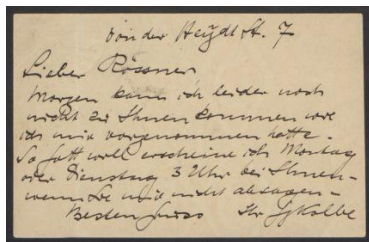 Von der Heydt St. 7
Lieber Rössner
Morgen kann ich leider noch
nicht zu Ihnen kommen wie
ich mir vorgenommen hatte.
So Gott will erscheine ich Montag
oder Dienstag 3 Uhr bei Ihnen -
wenn Sie mir nicht absagen -
Besten Gruss Ihr GKolbe